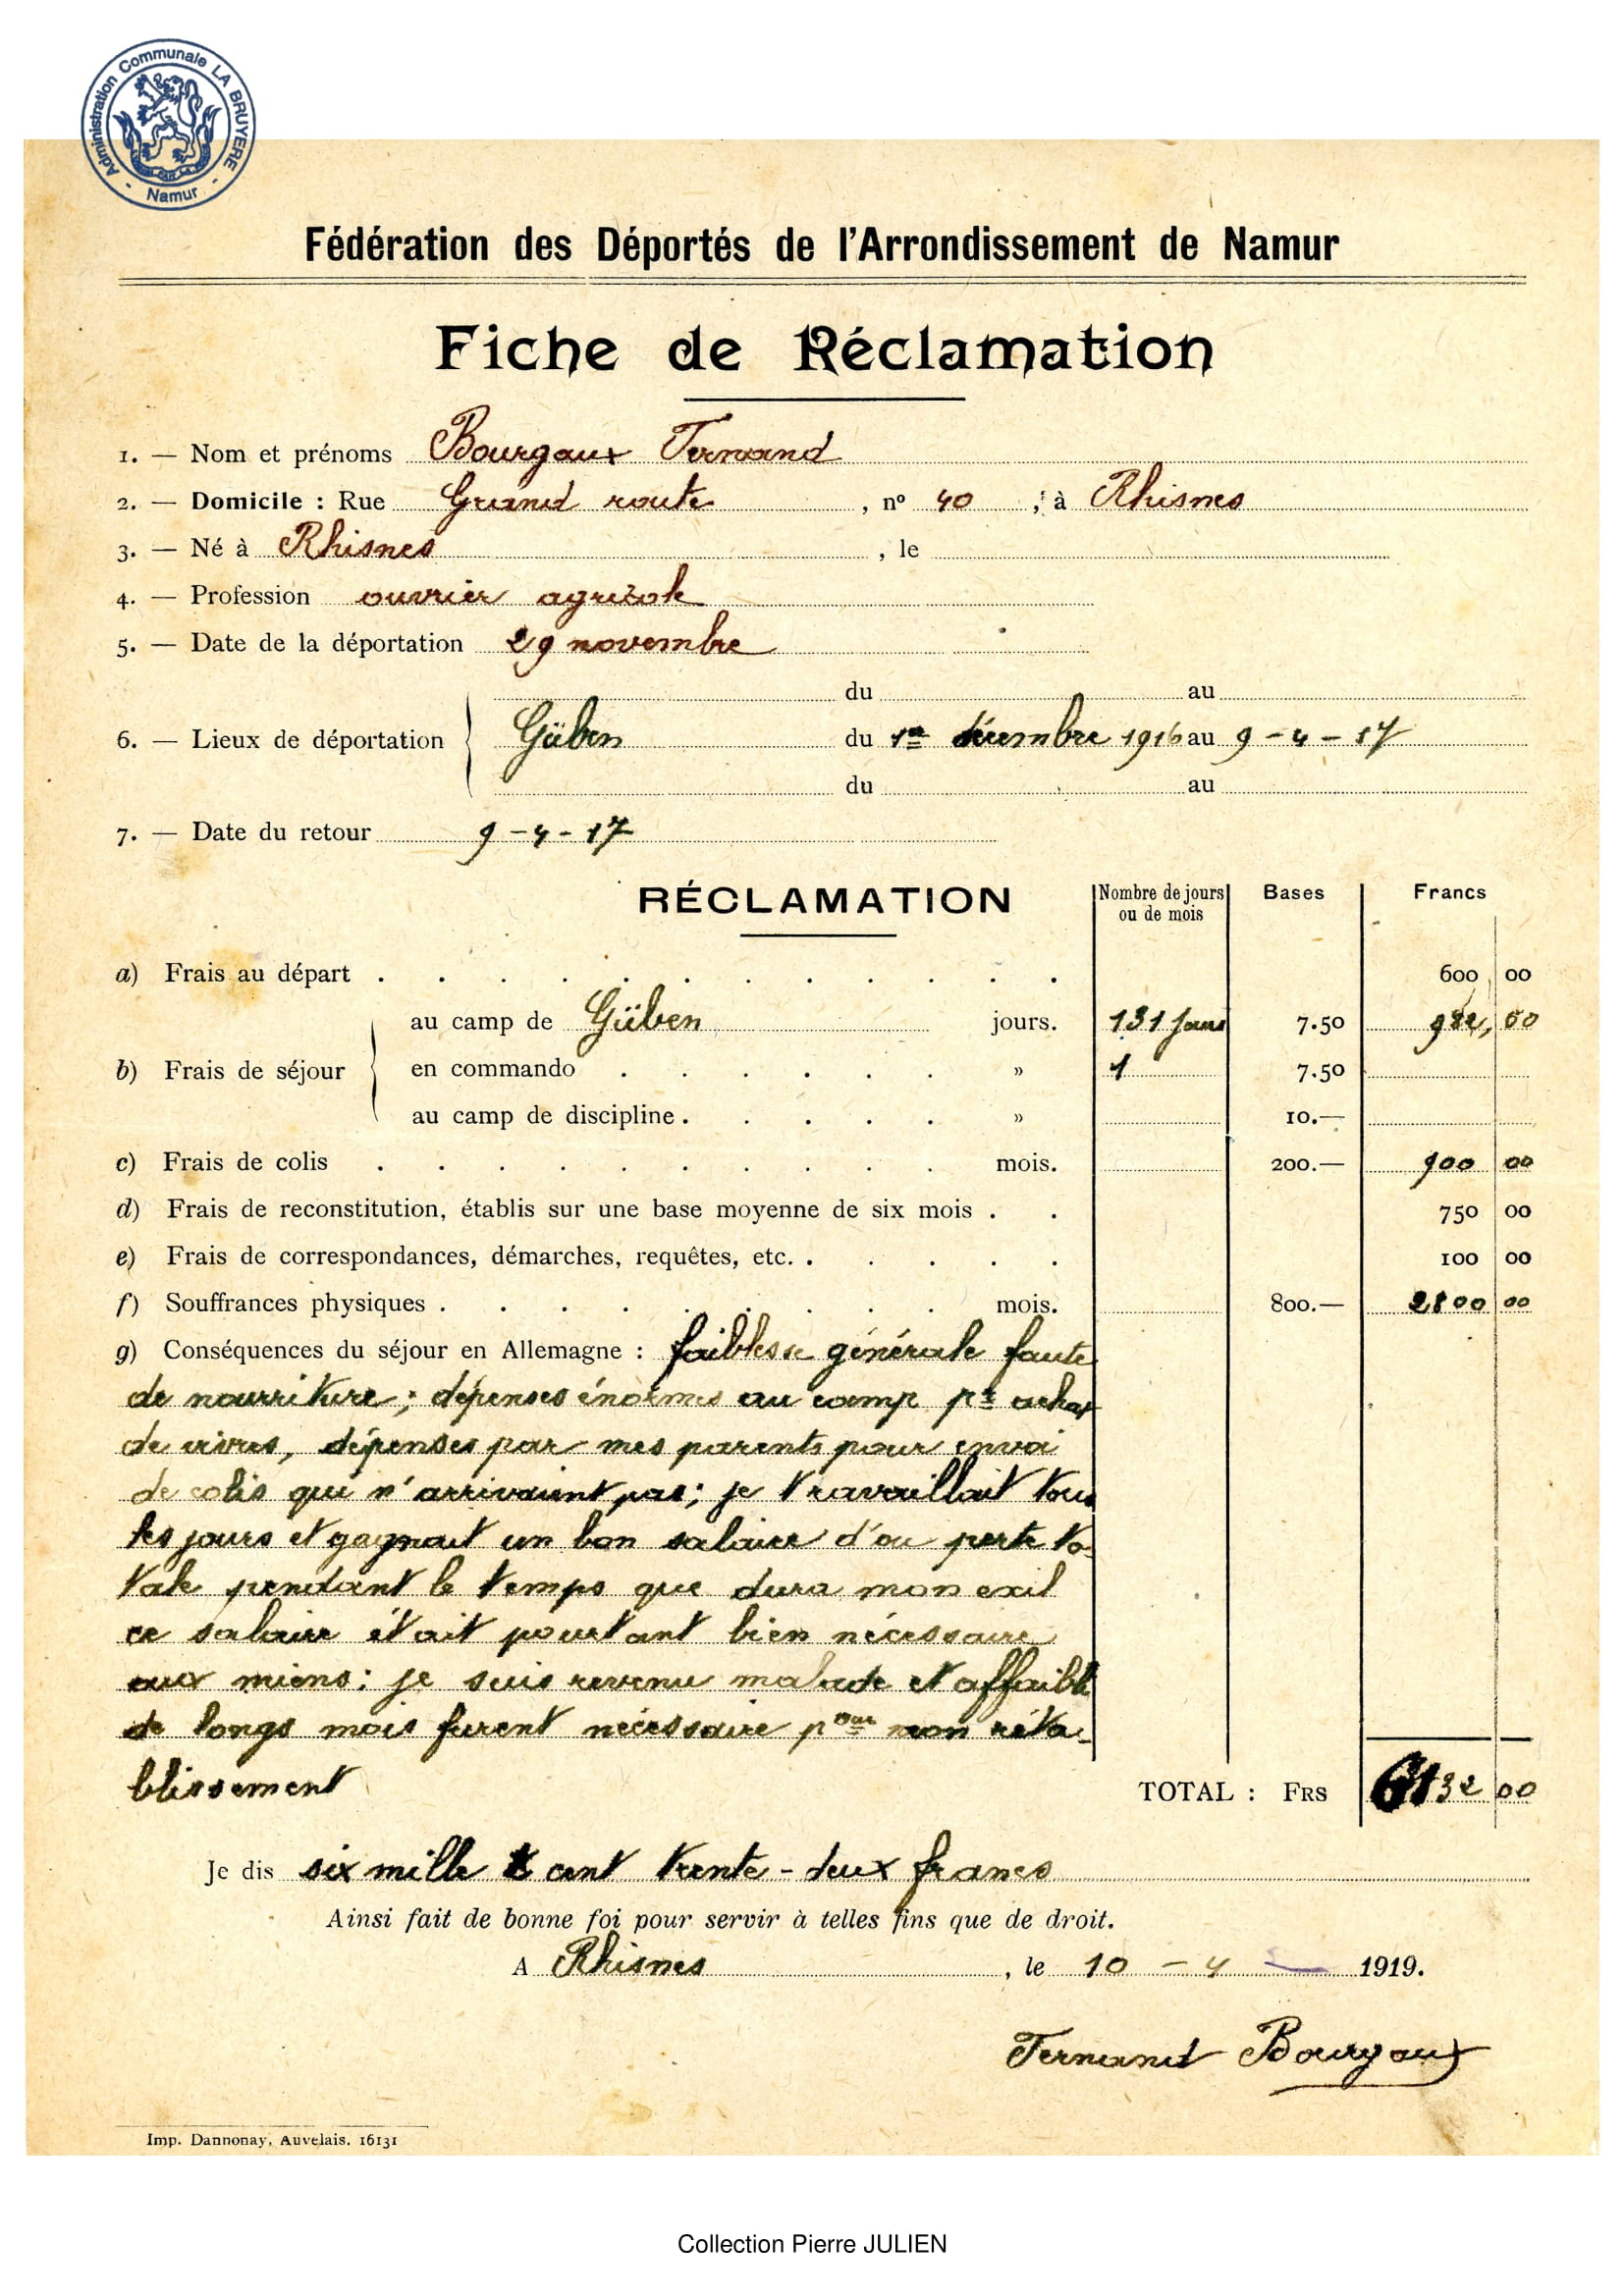 Administration Communale LA BRUYERE
- Namur -
Fédération des Déportés de l'Arrondissement de Namur
Fiche de Réclamation
1. — Nom et prénoms Bourgaux Fernand
2. — Domicile : Rue Grand route , nº 40 , à Rhisnes
3. — Né à Rhisnes , le
4. — Profession ouvrier agricole
5. — Date de la déportation 29 novembre
du au
6. — Lieux de déportation Güben du 1er décembre 1916 au 9-4-17
du au
7. — Date du retour 9-4-17
RÉCLAMATION Nombre de jours ou de mois Bases Francs
a) Frais au départ . . . . . . . . . . . . 600 00
au camp de Güben jours. 131 jours 7.50 982, 50
b) Frais de séjour en commando . . . . . . » 1 7.50
au camp de discipline . . . . . » 10.—
c) Frais de colis . . . . . . . . . . mois. 200.— 900 00
d) Frais de reconstitution, établis sur une base moyenne de six mois . . 750 00
e) Frais de correspondances, démarches, requêtes, etc. . . . . . 100 00
f) Souffrances physiques . . . . . . . . . mois. 800.— 2800 00
g) Conséquences du séjour en Allemagne : faiblesse générale faute
de nourriture ; dépenses énormes au camp pr achat
de vivres, dépenses par mes parents pour envoi
de colis qui n'arrivaient pas ; je travaillait tous
les jours et gagnait un bon salaire d'ou perte to-
tale pendant le temps que dura mon exil
ce salaire était pourtant bien nécessaire
aux miens : je suis revenu malade et affaibli
de longs mois furent nécessaire pour mon réta-
blissement
TOTAL : FRS 6132 00
Je dis six mille cent trente-deux francs
Ainsi fait de bonne foi pour servir à telles fins que de droit.
A Rhisnes , le 10 - 4 1919.
Fernand Bourgaux
Imp. Dannonay, Auvelais. 16131
Collection Pierre JULIEN